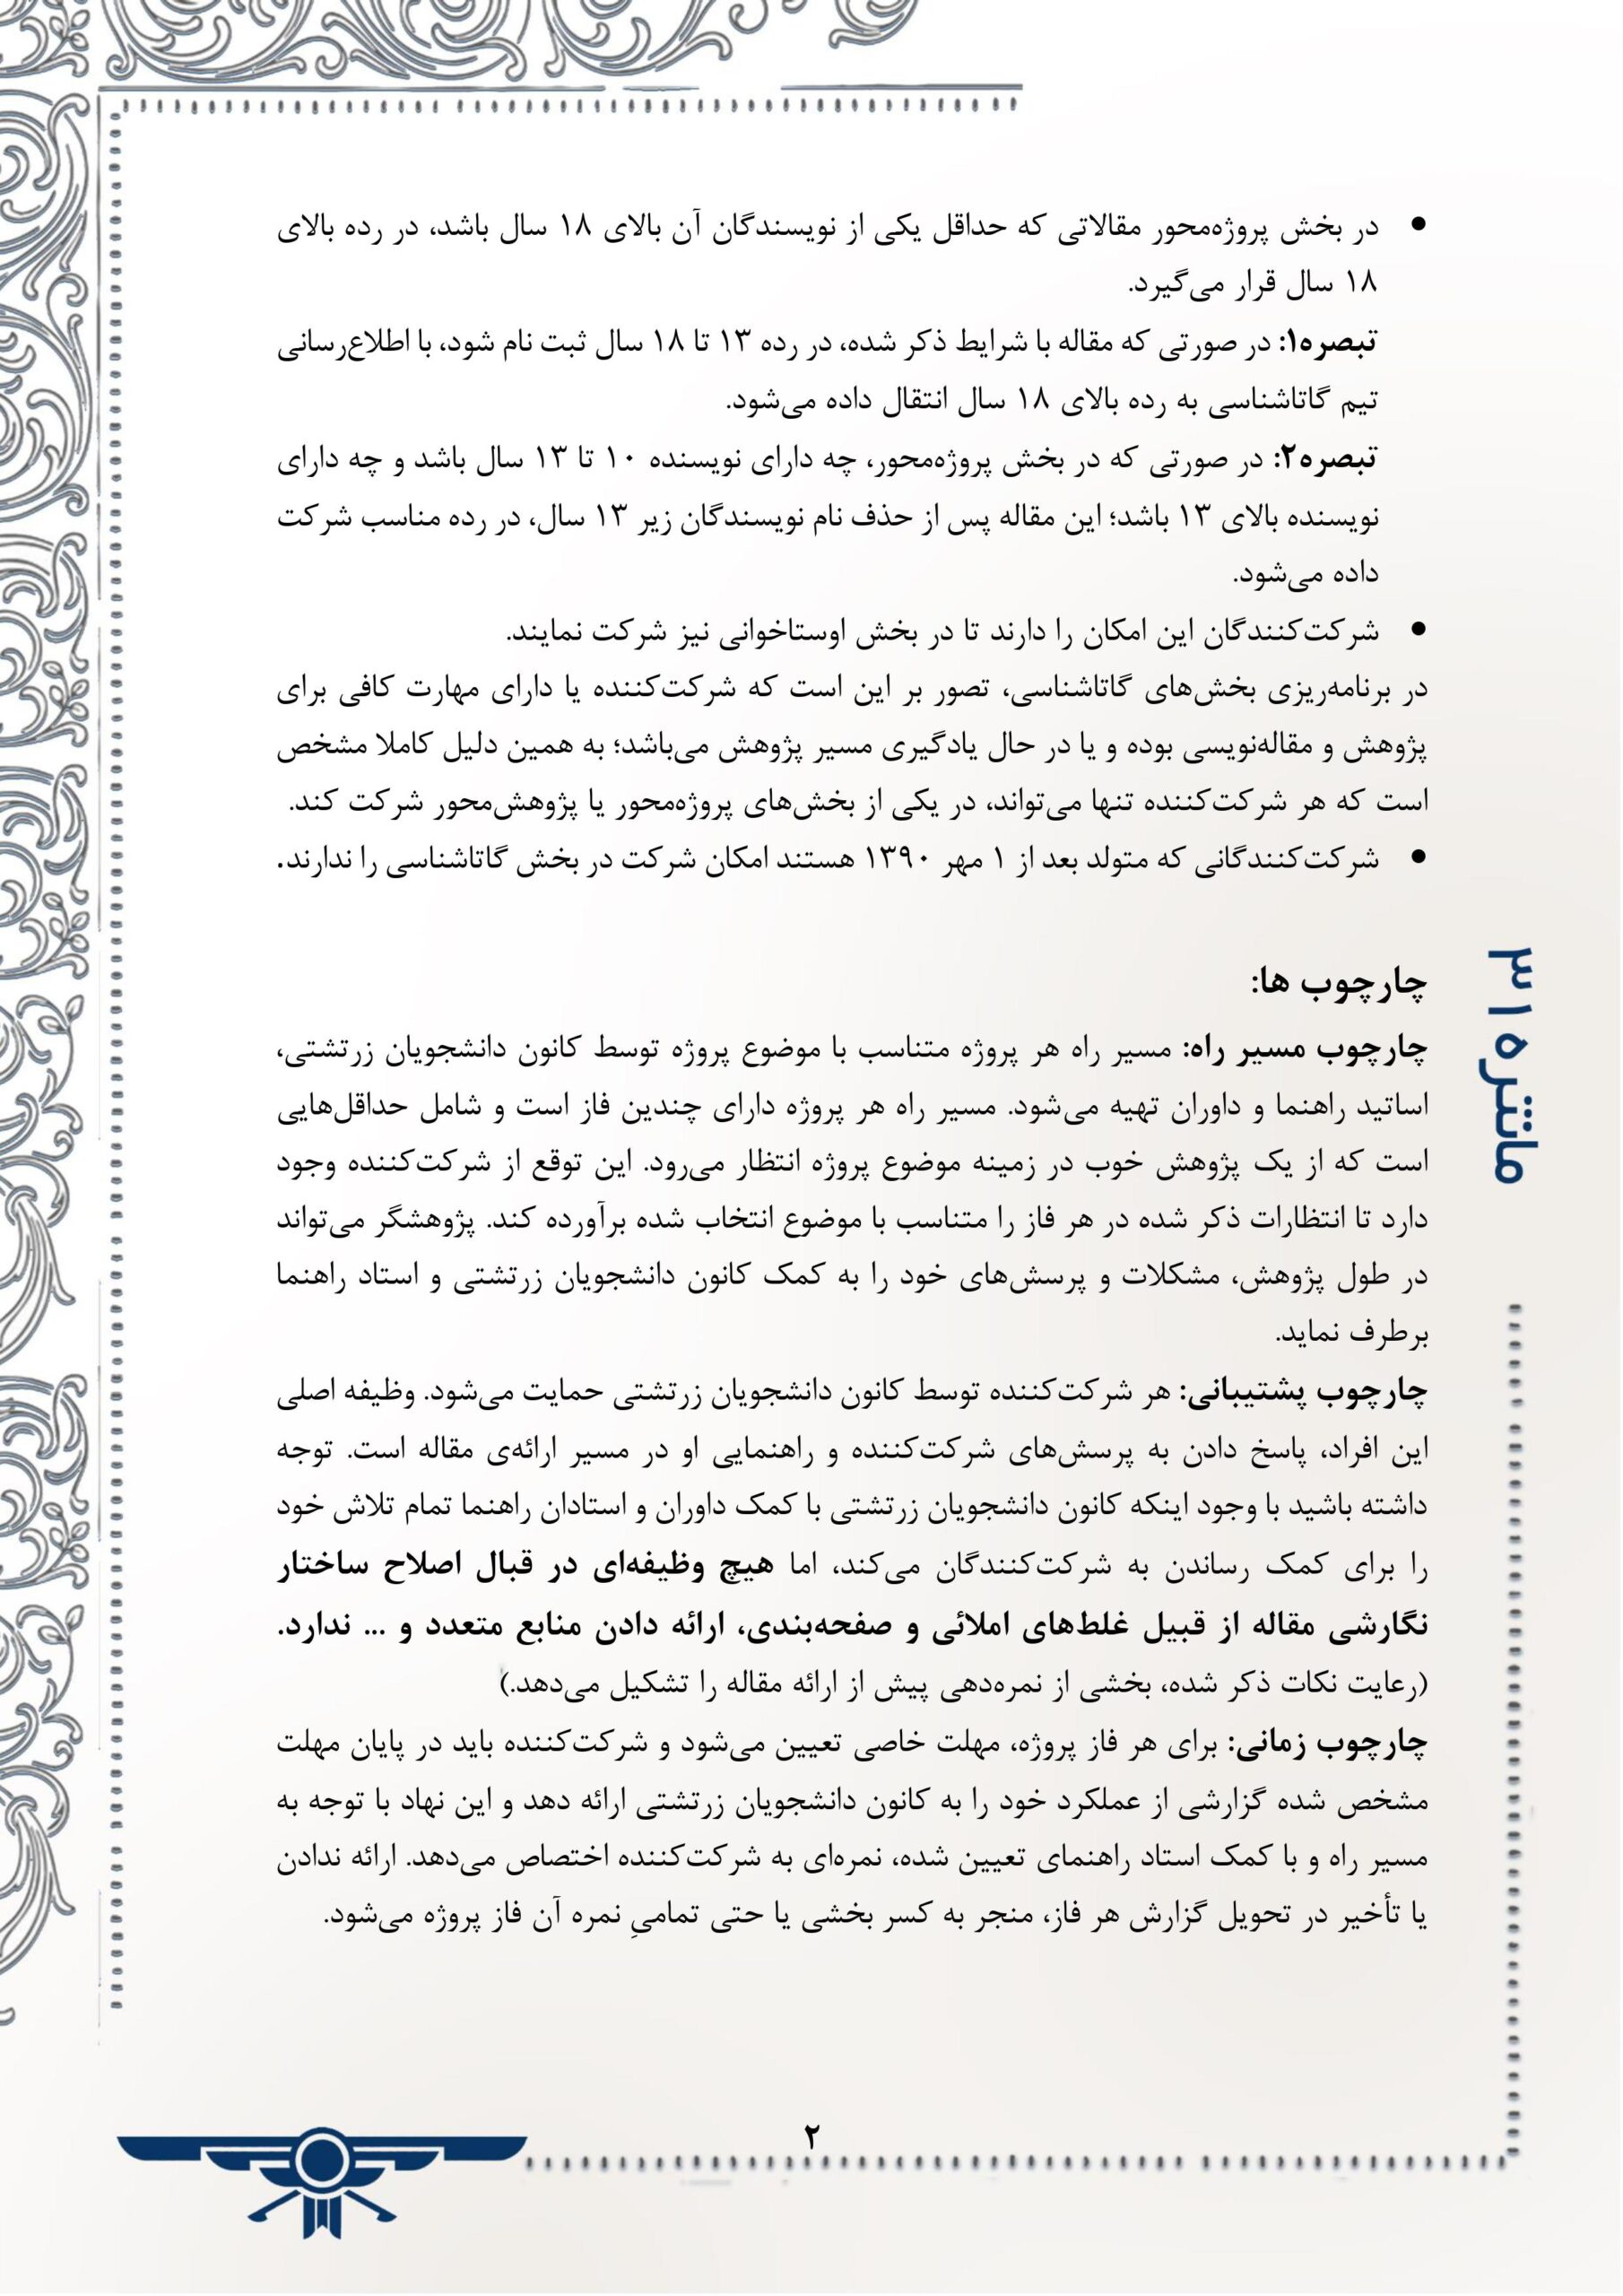 • در بخش پروژه‌محور مقالاتی که حداقل یکی از نویسندگان آن بالای ۱۸ سال باشد، در رده بالای
۱۸ سال قرار می‌گیرد.
تبصره۱: در صورتی که مقاله با شرایط ذکر شده، در رده ۱۳ تا ۱۸ سال ثبت نام شود، با اطلاع‌رسانی
تیم گاتاشناسی به رده بالای ۱۸ سال انتقال داده می‌شود.
تبصره۲: در صورتی که در بخش پروژه‌محور، چه دارای نویسنده ۱۰ تا ۱۳ سال باشد و چه دارای
نویسنده بالای ۱۳ باشد؛ این مقاله پس از حذف نام نویسندگان زیر ۱۳ سال، در رده مناسب شرکت
داده می‌شود.
• شرکت‌کنندگان این امکان را دارند تا در بخش اوستاخوانی نیز شرکت نمایند.
در برنامه‌ریزی بخش‌های گاتاشناسی، تصور بر این است که شرکت‌کننده یا دارای مهارت کافی برای
پژوهش و مقاله‌نویسی بوده و یا در حال یادگیری مسیر پژوهش می‌باشد؛ به همین دلیل کاملا مشخص
است که هر شرکت‌کننده تنها می‌تواند، در یکی از بخش‌های پروژه‌محور یا پژوهش‌محور شرکت کند.
• شرکت‌کنندگانی که متولد بعد از ۱ مهر ۱۳۹۰ هستند امکان شرکت در بخش گاتاشناسی را ندارند.
چارچوب ها:
چارچوب مسیر راه: مسیر راه هر پروژه متناسب با موضوع پروژه توسط کانون دانشجویان زرتشتی،
اساتید راهنما و داوران تهیه می‌شود. مسیر راه هر پروژه دارای چندین فاز است و شامل حداقل‌هایی
است که از یک پژوهش خوب در زمینه موضوع پروژه انتظار می‌رود. این توقع از شرکت‌کننده وجود
دارد تا انتظارات ذکر شده در هر فاز را متناسب با موضوع انتخاب شده برآورده کند. پژوهشگر می‌تواند
در طول پژوهش، مشکلات و پرسش‌های خود را به کمک کانون دانشجویان زرتشتی و استاد راهنما
برطرف نماید.
چارچوب پشتیبانی: هر شرکت‌کننده توسط کانون دانشجویان زرتشتی حمایت می‌شود. وظیفه اصلی
این افراد، پاسخ دادن به پرسش‌های شرکت‌کننده و راهنمایی او در مسیر ارائه‌ی مقاله است. توجه
داشته باشید با وجود اینکه کانون دانشجویان زرتشتی با کمک داوران و استادان راهنما تمام تلاش خود
را برای کمک رساندن به شرکت‌کنندگان می‌کند، اما هیچ وظیفه‌ای در قبال اصلاح ساختار
نگارشی مقاله از قبیل غلط‌های املائی و صفحه‌بندی، ارائه دادن منابع متعدد و ... ندارد.
(رعایت نکات ذکر شده، بخشی از نمره‌دهی پیش از ارائه مقاله را تشکیل می‌دهد.)
چارچوب زمانی: برای هر فاز پروژه، مهلت خاصی تعیین می‌شود و شرکت‌کننده باید در پایان مهلت
مشخص شده گزارشی از عملکرد خود را به کانون دانشجویان زرتشتی ارائه دهد و این نهاد با توجه به
مسیر راه و با کمک استاد راهنمای تعیین شده، نمره‌ای به شرکت‌کننده اختصاص می‌دهد. ارائه ندادن
یا تأخیر در تحویل گزارش هر فاز، منجر به کسر بخشی یا حتی تمامیِ نمره آن فاز پروژه می‌شود.
مانتره ۳۱
۲